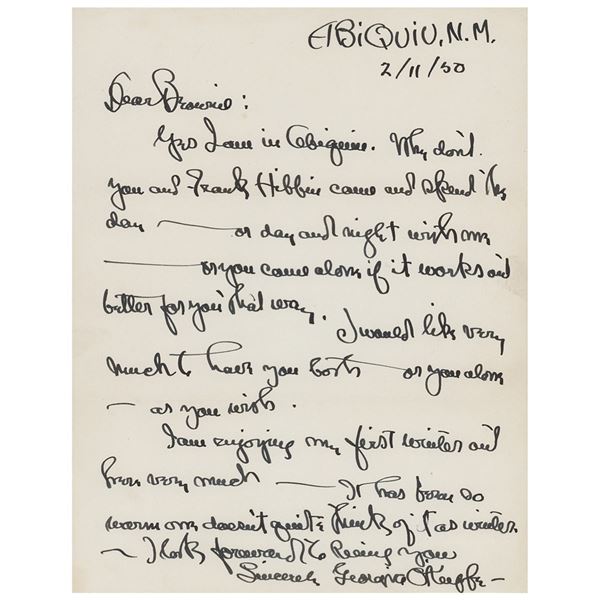 ABiQUiU, N.M.
2/11/50
Dear Brownie:
Yes I am in Abiquiu. Why don't
you and Frank Hibbin come and spend the
day — or day and night with me
— or you come alone if it works out
better for you that way. I would like very
much to have you both — or you alone
— as you wish.
I am enjoying my first winter out
here very much — It has been so
warm one doesn't quite think of it as winter.
— I look forward to seeing you
Sincerely Georgia O'Keeffe —